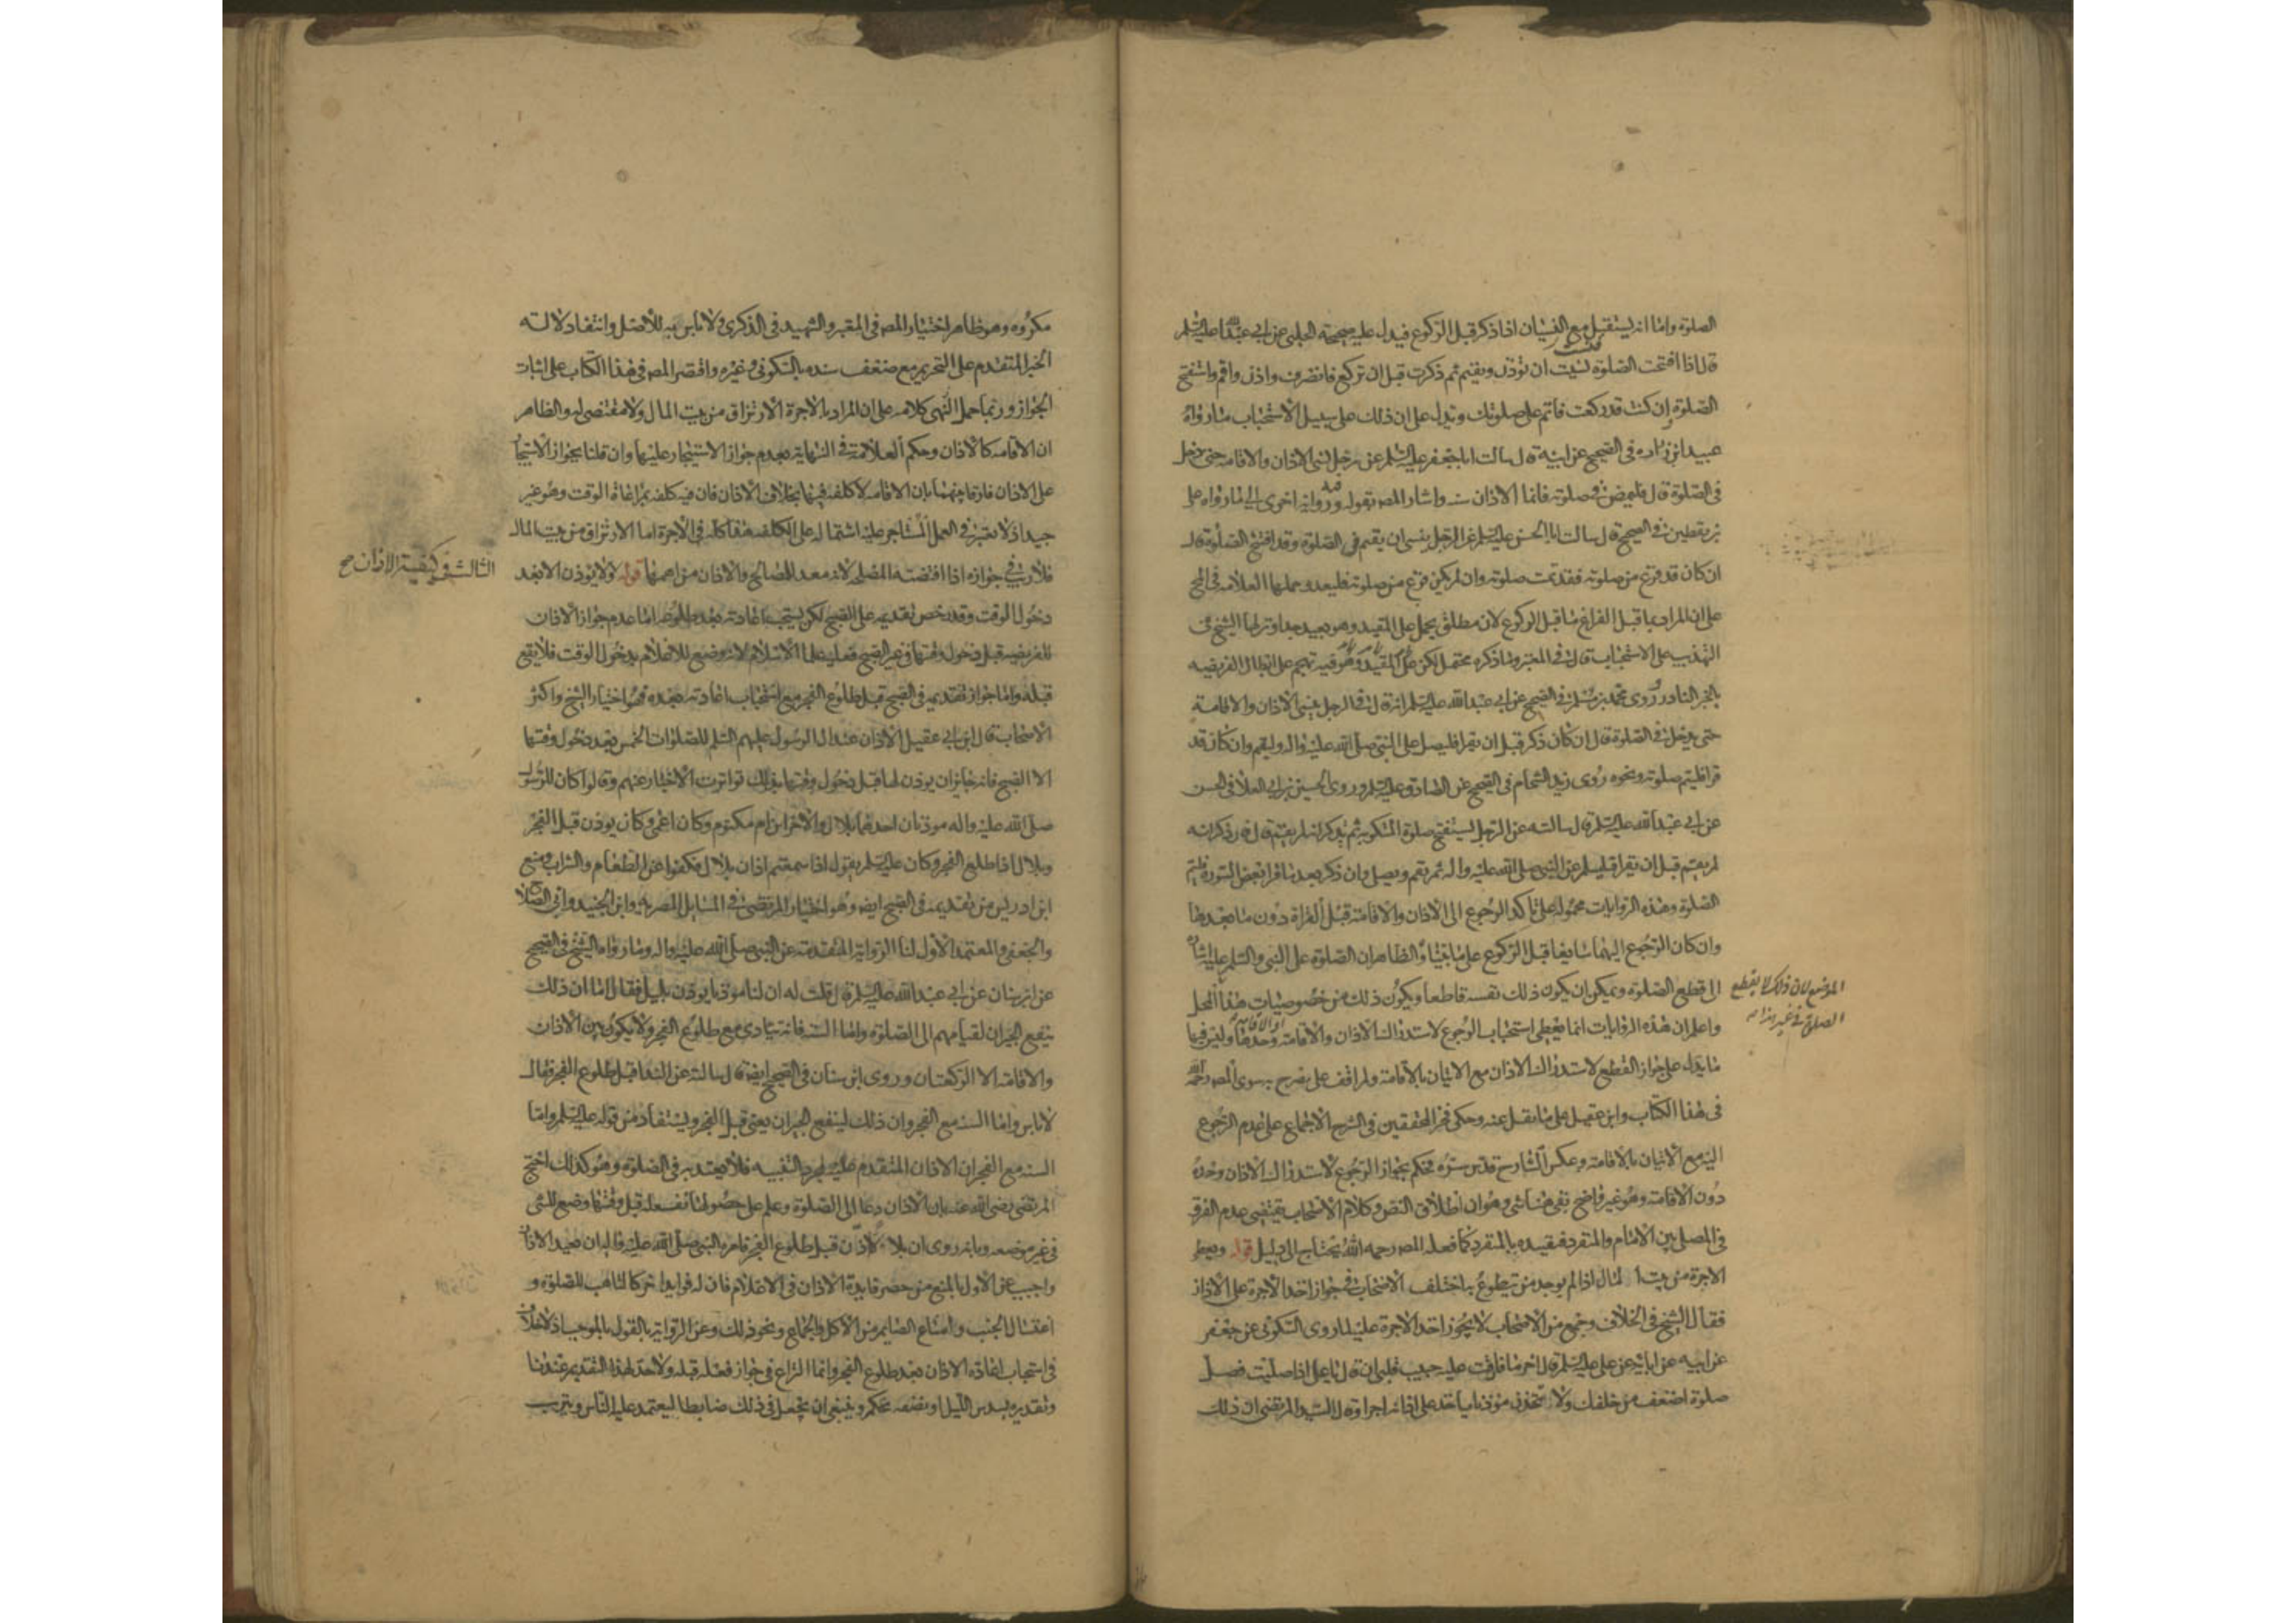 الصلوة واما انه يستقبل مع النسيان اذا ذكر قبل الركوع فيدل عليه صحيحة الحلبى عن ابى عبد الله عليه السلم
قال اذا افتتحت الصلوة نسيت ان تؤذن وتقيم ثم ذكرت قبل ان تركع فانصرف واذن واقم واستفتح
الصلوة وان كنت قد ركعت فاتم على صلوتك ويدل على ان ذلك على سبيل الاستحباب ما رواه
عبيد ابن زراره فى الصحيح عن ابيه قال سالت ابا جعفر عليه السلم عن رجل نسى الاذان والاقامه حتى دخل
فى الصلوة قال فليمض فى صلوته فانما الاذان سنه واشار المص بقوله وفيه رواية اخرى الى ما رواه على
بن يقطين فى الصحيح قال سالت ابا الحسن عليه السلم عن الرجل ينسى ان يقيم فى الصلوة وقد افتتح الصلوة قال
ان كان قد فرغ من صلوته فقد تمت صلوته وان لم يكن فرغ من صلوته فليعد وحملها العلامه فى المخ
على ان المراد بما قبل الفراغ ما قبل الركوع لان مطلق يحمل على المقيد وهو بعيد جدا ونزلها الشيخ فى
التهذيب على الاستحباب قال فى المعتبر وما ذكره محتمل لكن فيه تهجم على ابطال الفريضه
بالخبر النادر وروى محمد بن مسلم فى الصحيح عن ابى عبد الله عليه السلم انه قال فى الرجل ينسى الاذان والاقامة
حتى يدخل فى الصلوة قال ان كان ذكر قبل ان يقرا فليصل على النبى صلى الله عليه واله وليقم وان كان قد
قرا فليتم صلوته ونحوه روى زيد الشحام فى الصحيح عن الصادق عليه السلم وروى الحسين بن ابى العلا فى الحسن
عن ابى عبد الله عليه السلم قال سالته عن الرجل يستفتح صلوة المكتوبه ثم يذكر انه لم يقم قال فان ذكر انه
لم يقم قبل ان يقرا فليسلم على النبى صلى الله عليه واله ثم يقم ويصل وان ذكر بعد ما قرا بعض السورة فليتم
الصلوة وهذه الروايات محموله على تاكد الرجوع الى الاذان والاقامة قبل القراة دون ما بعدها
وان كان الرجوع اليهما سايغا قبل الركوع على ما بيناه والظاهر ان الصلوة على النبى والسلم عليه اشاره
الى قطع الصلوة ويمكن ان يكون ذلك نفسه قاطعا ويكون ذلك من خصوصيات هذا المحل
الموضع لان ذلك لا يقطع
الصلوة فى غير هذا
واعلم ان هذه الروايات انما يعطى استحباب الرجوع لاستدراك الاذان والاقامة او الاقامة وحدها وليس فيها
ما يدل على جواز القطع لاستدراك الاذان مع الاتيان بالاقامة ولم اقف على مصرح به سوى المص رحمه الله
فى هذا الكتاب وابن عقيل على ما نقل عنه وحكى فخر المحققين فى الشرح الاجماع على عدم الرجوع
اليه مع الاتيان بالاقامة وعكس الشارح قدس سره فحكم بجواز الرجوع لاستدراك الاذان وحده
دون الاقامة وهو غير واضح بقى هنا شى وهو ان اطلاق النص وكلام الاصحاب يقتضى عدم الفرق
فى المصلى بين الامام والمنفرد فتقييده بالمنفرد كما فعله المص رحمه الله يحتاج الى دليل قوله ويعطى
الاجرة من بيت المال اذا لم يوجد من يتطوع به اختلف الاصحاب فى جواز اخذ الاجرة على الاذان
فقال الشيخ فى الخلاف وجمع من الاصحاب لا يجوز اخذ الاجرة عليه لما روى السكونى عن جعفر
عن ابيه عن ابائه عن على عليه السلم قال اخر ما فارقت عليه حبيب قلبى ان قال يا على اذا صليت فصل
صلوة اضعف من خلفك ولا تتخذن موذنا ياخذ على اذانه اجرا وقال السيد المرتضى ان ذلك
مكروه وهو ظاهر اختيار المص فى المعتبر والشهيد فى الذكرى ولا باس به للاصل وانتفاء دلالته
الخبر المتقدم على التحريم مع ضعف سنده بالسكونى وغيره واقتصر المص فى هذا الكتاب على اثبات
الجواز وربما حمل النهى كلامه على ان المراد بالاجرة الارتزاق من بيت المال ولا مقتضى له والظاهر
ان الاقامه كالاذان وحكم العلامة فى النهاية بعدم جواز الاستيجار عليها وان قلنا بجواز الاستيجار
على الاذان فارقا بينهما بان الاقامه لا كلفه فيها بخلاف الاذان فان فيه كلفه بمراعاة الوقت وهو غير
جيد اذ لا يعتبر فى العمل المستاجر عليه اشتماله على الكلفه هذا كله فى الاجرة اما الارتزاق من بيت المال
فلا ريب فى جوازه اذا اقتضته المصلحه لانه معد للمصالح والاذان من اهمها قوله ولا يؤذن الا بعد
الثالث فى كيفية الاذان صح
دخول الوقت وقد رخص تقديمه على الصبح لكن يستحب اعادته بعد طلوعه اما عدم جواز الاذان
للفريضه قبل دخول وقتها فى غير الصبح فعليه علما الاسلام لانه وضع للاعلام بدخول الوقت فلا يقع
قبله واما جواز تقديمه فى الصبح قبل طلوع الفجر مع استحباب اعادته بعده فهو اختيار الشيخ واكثر
الاصحاب قال ابن ابى عقيل الاذان عند ال الرسول عليهم السلم للصلوات الخمس بعد دخول وقتها
الا الصبح فانه جايز ان يوذن لها قبل دخول وقتها بذلك تواترت الاخبار عنهم وقالوا كان للرسول
صلى الله عليه واله موذنان احدهما بلال والاخر ابن ام مكتوم وكان اعمى وكان يوذن قبل الفجر
وبلال اذا طلع الفجر وكان عليه السلم يقول اذا سمعتم اذان بلال فكفوا عن الطعام والشراب ومنع
ابن ادريس من تقديمه فى الصبح ايضا وهو اختيار المرتضى فى المسايل المصريه وابن الجنيد وابى الصلاح
والجعفى والمعتمد الاول لنا الرواية المتقدمة عن النبى صلى الله عليه واله وما رواه الشيخ فى الصحيح
عن ابن سنان عن ابى عبد الله عليه السلم قال قلت له ان لنا موذنا يوذن بليل فقال اما ان ذلك
ينفع الجيران لقيامهم الى الصلوة واما السنه فانه ينادى مع طلوع الفجر ولا يكون بين الاذان
والاقامه الا الركعتان وروى ابن سنان فى الصحيح ايضا قال سالته عن الندا قبل طلوع الفجر فقال
لا باس واما السنه مع الفجر وان ذلك لينفع الجيران يعنى قبل الفجر ويستفاد من قوله عليه السلم واما
السنه مع الفجر ان الاذان المتقدم عليه لمجرد التنبيه فلا يعتد به فى الصلوة وهو كذلك احتج
المرتضى رضى الله عنه بان الاذان دعا الى الصلوة وعلم على حضورها ففعله قبل وقتها وضع للشى
فى غير موضعه وبانه روى ان بلالا اذن قبل طلوع الفجر فامره النبى صلى الله عليه واله ان يعيد الاذان
واجيب عن الاول بالمنع من حصر فايدة الاذان فى الاعلام فان له فوايد اخر كالتاهب للصلوة و
اغتسال الجنب وامتناع الصايم من الاكل والجماع ونحو ذلك وعن الرواية بالقول بالموجب اذ لا خلاف
فى استحباب اعادة الاذان بعد طلوع الفجر وانما النزاع فى جواز فعله قبله ولا حد لهذا التقديم عندنا
وتقديره بسدس الليل او نصفه تحكم وينبغى ان يجعل فى ذلك ضابطا ليعتمد عليه الناس ويترتب